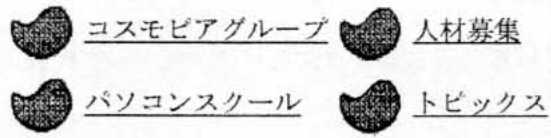 コスモピアグループ 人材募集
パソコンスクール トピックス